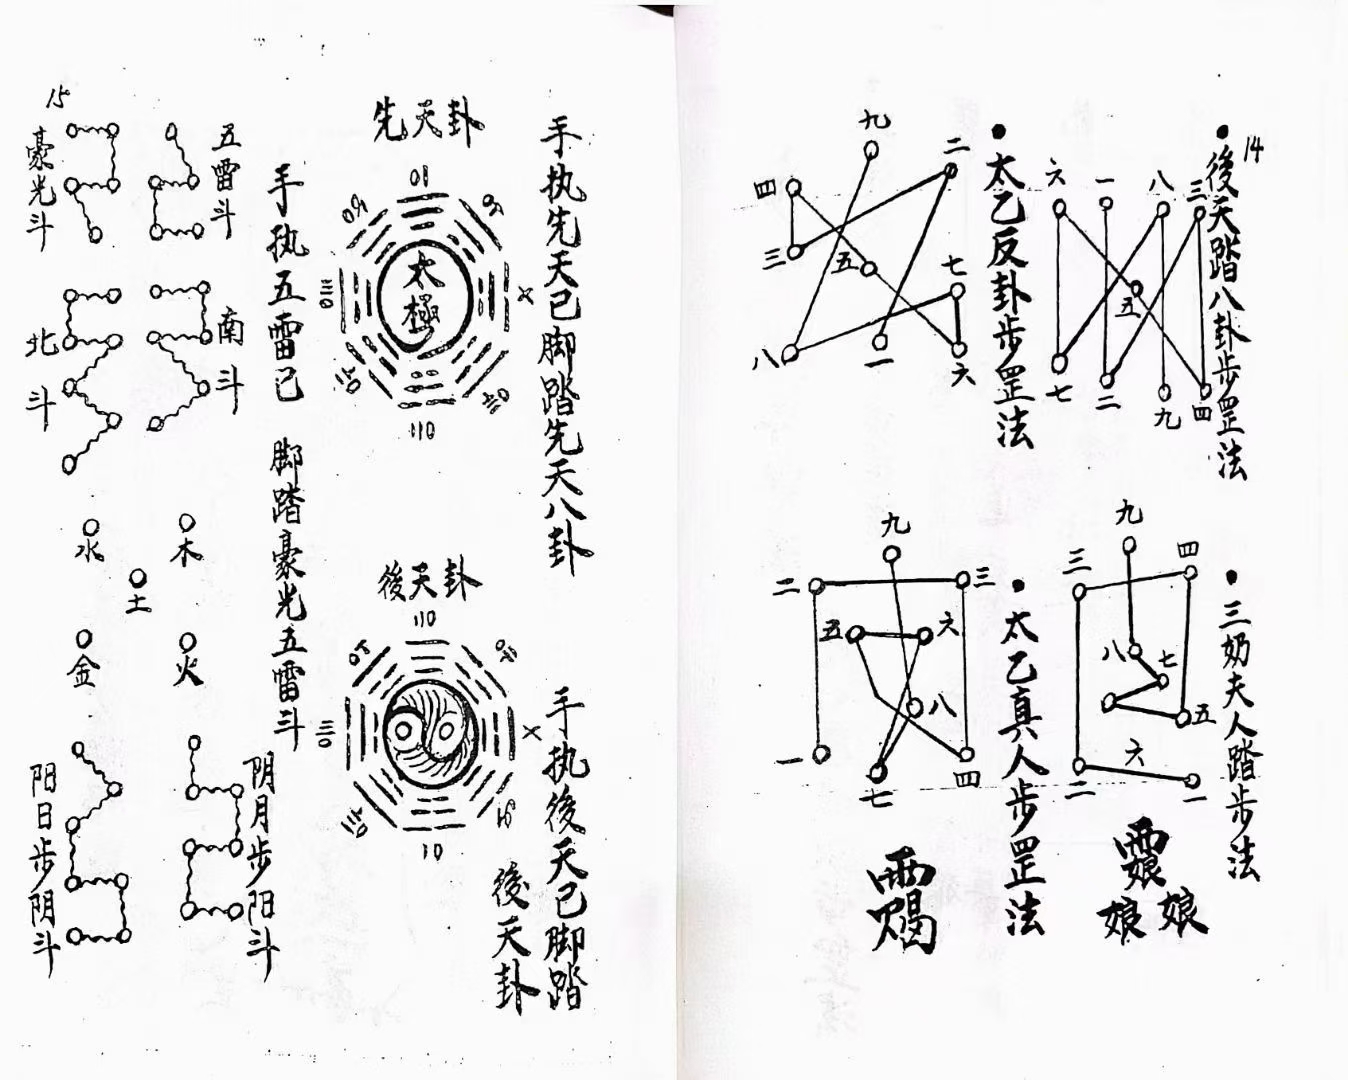 14
後天踏八卦步罡法
六
一
八
三
五
七
二
九
四
太乙反卦步罡法
九
二
四
三
五
七
八
一
六
三奶夫人踏步法
九
三
四
八
七
五
六
二
一
娘娘
太乙真人步罡法
九
二
三
五
六
八
一
七
四
15
手执先天已脚踏先天八卦
先天卦
太極
手执後天已脚踏
後天卦
後天卦
手执五雷已 脚踏豪光五雷斗
五雷斗
豪光斗
南斗
北斗
水
木
土
金
火
阴月步阳斗
阳日步阴斗